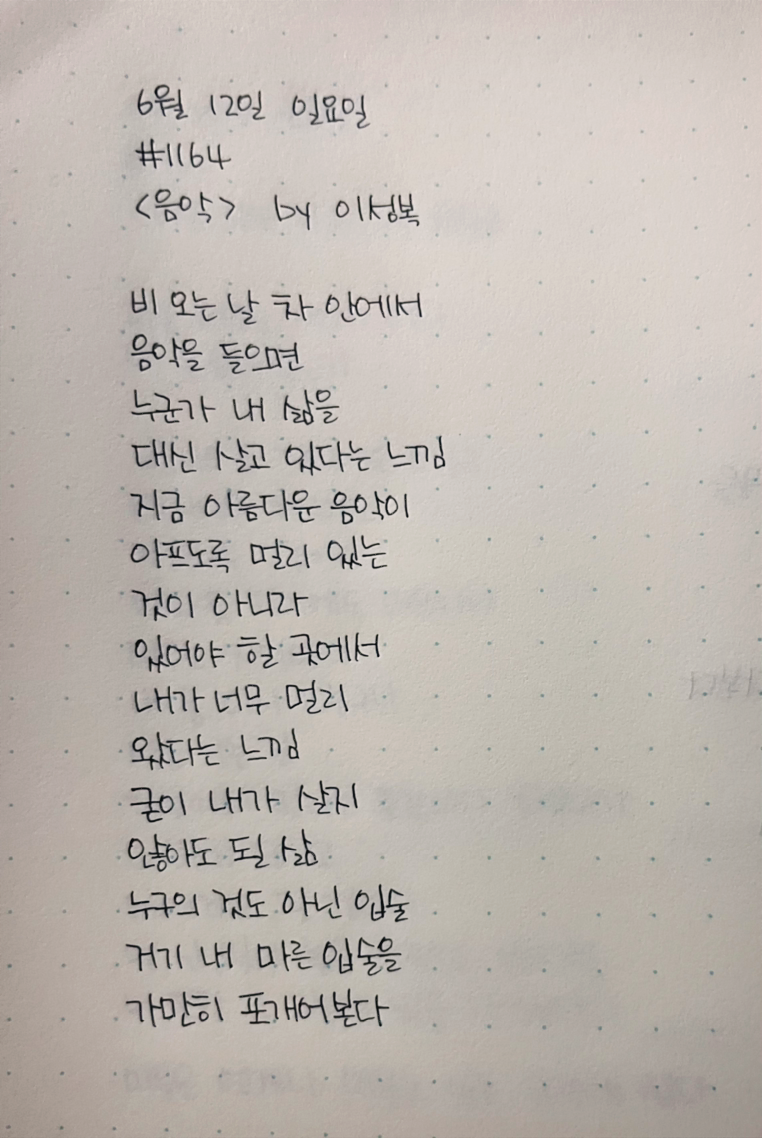 6월 12일 일요일
#1164
<음악> by 이성복
비 오는 날 차 안에서
음악을 들으면
누군가 내 삶을
대신 살고 있다는 느낌
지금 아름다운 음악이
아프도록 멀리 있는
것이 아니라
있어야 할 곳에서
내가 너무 멀리
왔다는 느낌
굳이 내가 살지
않아도 될 삶
누구의 것도 아닌 입술
거기 내 마른 입술을
가만히 포개어본다